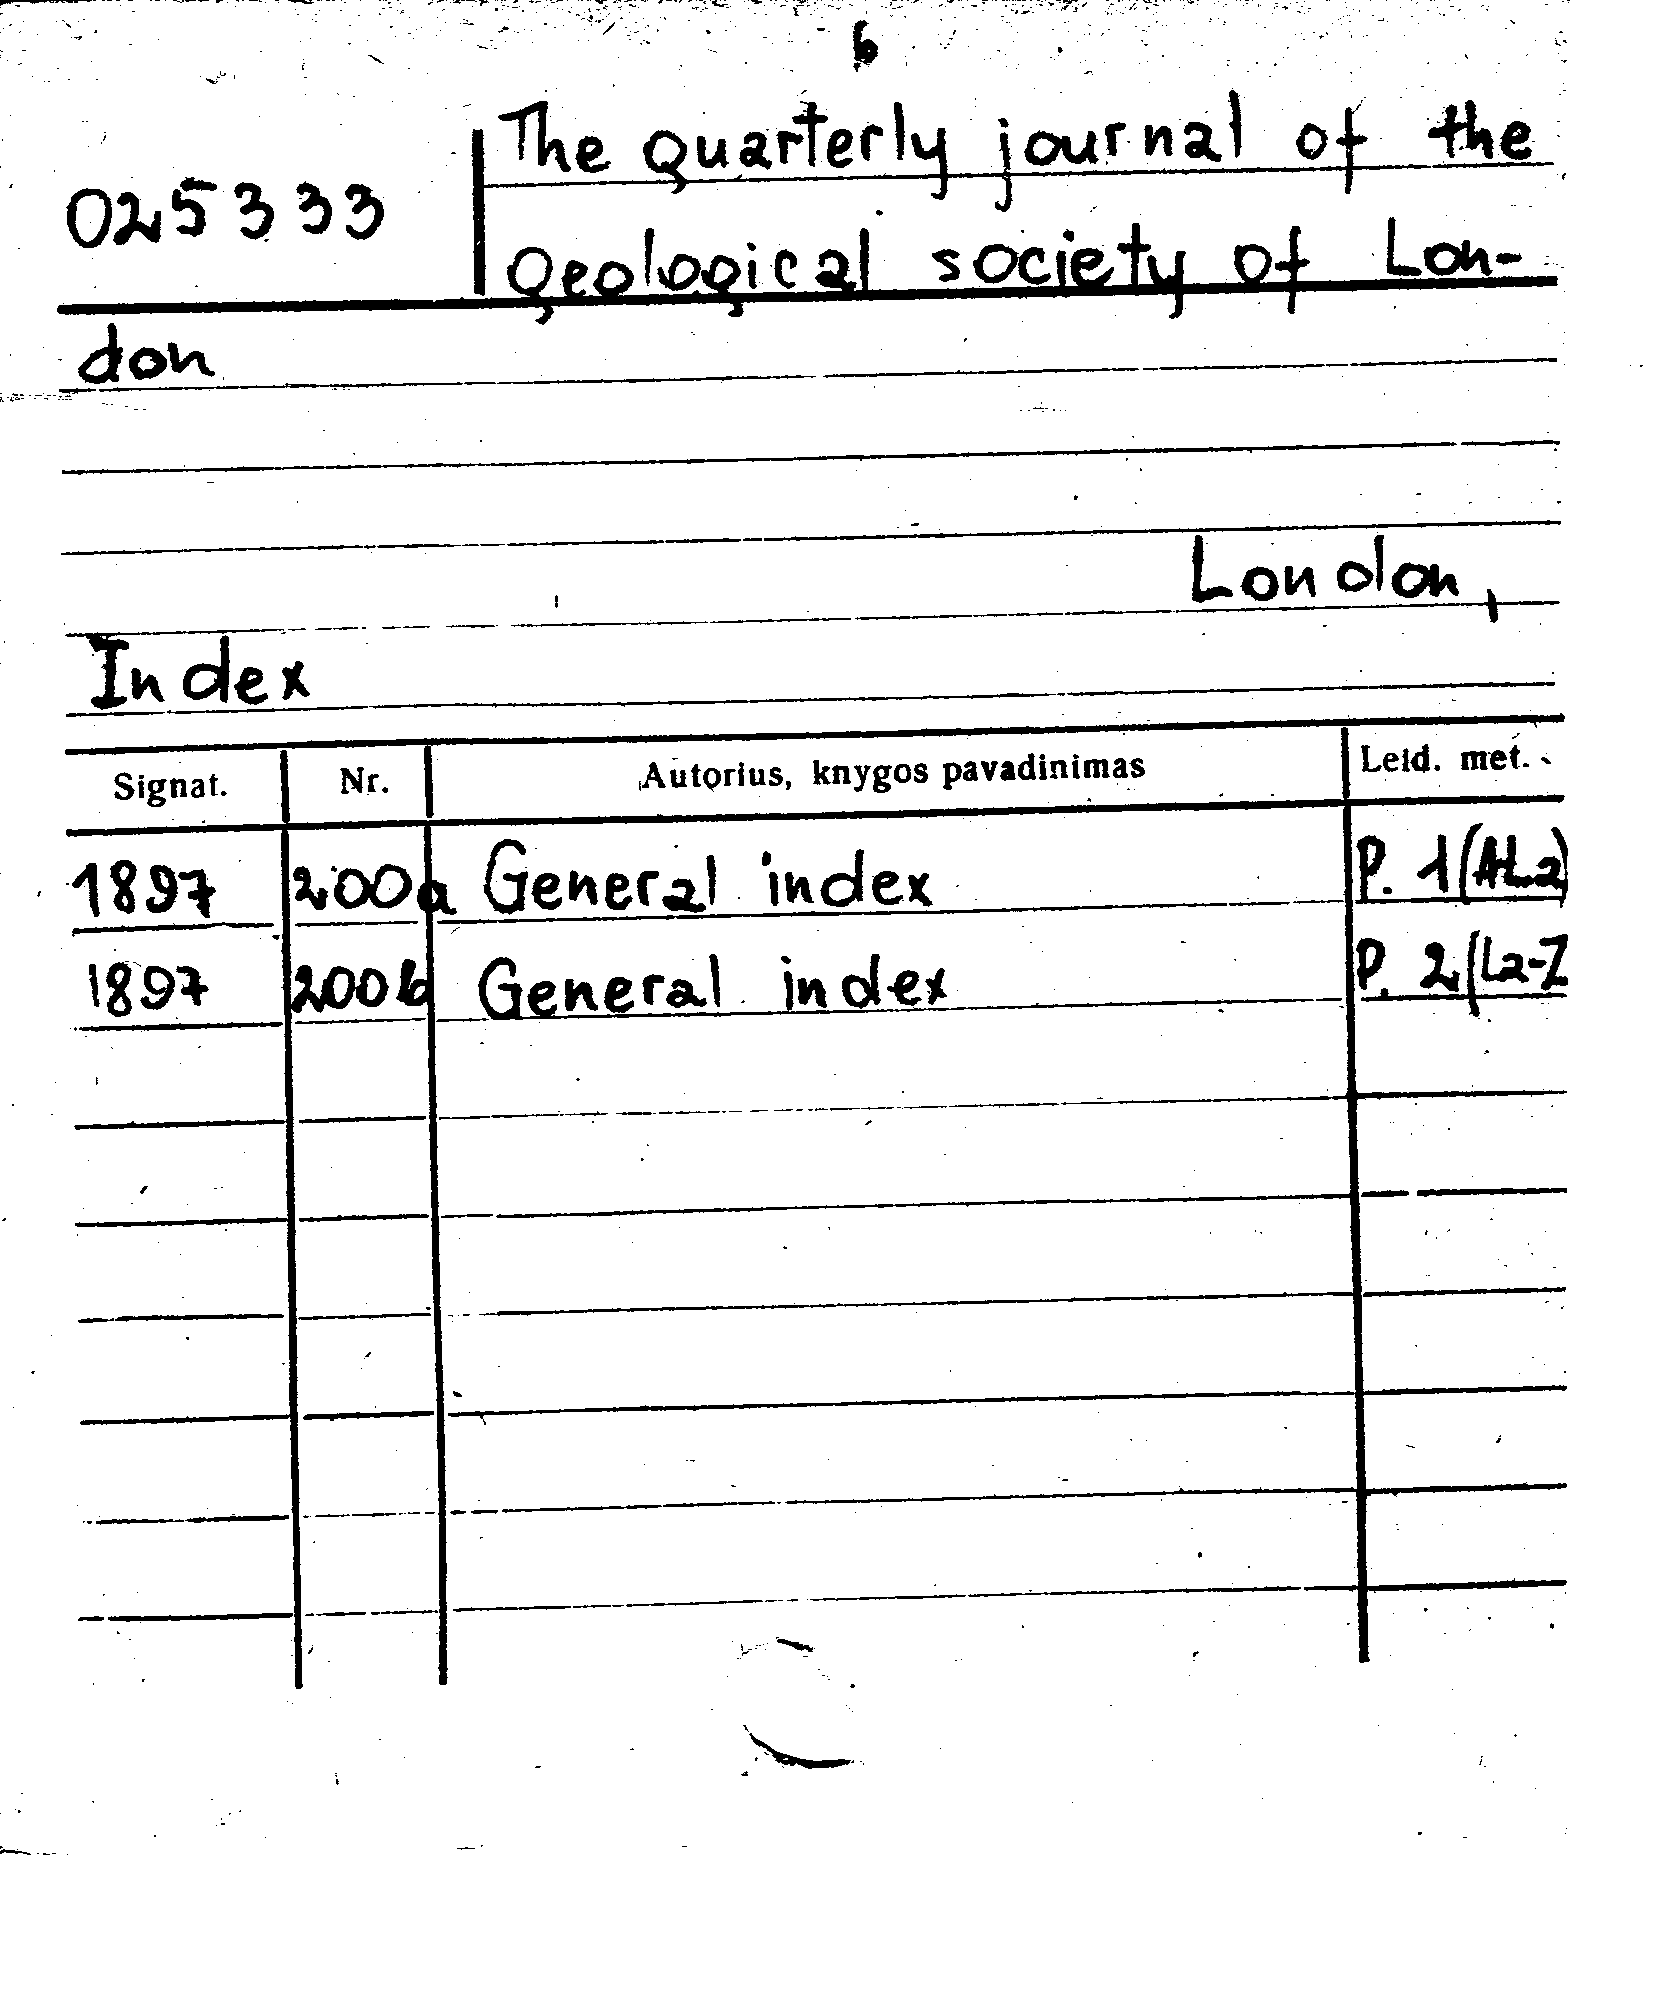 6
The quarterly journal of the
025333
geological society of Lon-
don
London,
Index
Signat. Nr. Autorius, knygos pavadinimas Leid. met.
1897 200a General index P. 1(A-La)
1897 200b General index P. 2(La-Z